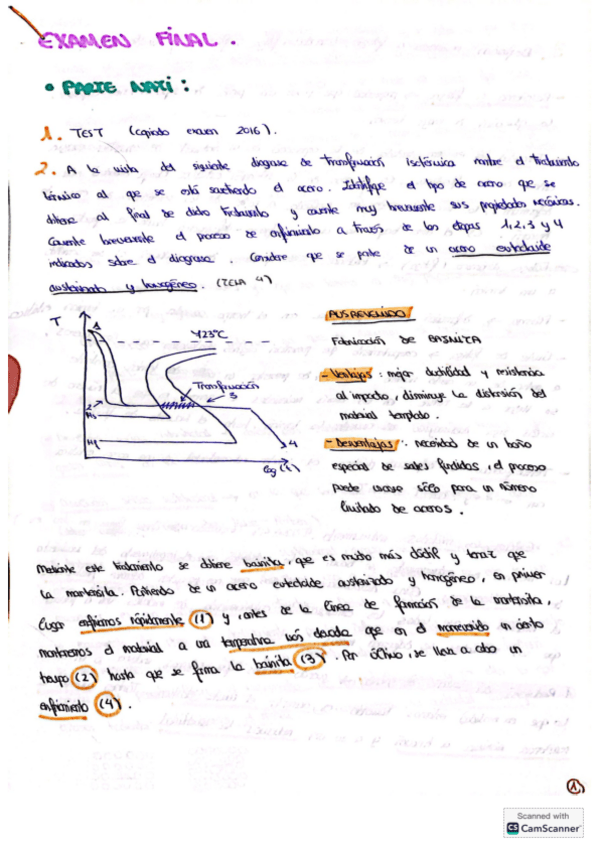 EXAMEN FINAL.
• PARTE NATI:
1. TEST (copiado examen 2016).
2. A la vista del siguiente diagrama de transformación isotérmica nombre el tratamiento
térmico al que se está sometiendo el acero. Identifique el tipo de acero que se
obtiene al final de dicho tratamiento y comente muy brevemente sus propiedades mecánicas.
Comente brevemente el proceso de enfriamiento a través de las etapas 1, 2, 3 y 4
indicadas sobre el diagrama. Considere que se parte de un acero eutectoide
austenizado y homogéneo. (TEMA 4)
T
1
723°C
Transformación
3
2
Ms
Mf
4
log (t)
AUSREVENIDO
Fabricación DE BAINITA
- Ventajas: mejor ductilidad y resistencia
al impacto, disminuye la distorsión del
material templado.
- Desventajas: necesidad de un baño
especial de sales fundidas, el proceso
puede usarse sólo para un número
limitado de aceros.
Mediante este tratamiento se obtiene bainita, que es mucho más dúctil y tenaz que
la martensita. Partiendo de un acero eutectoide austenizado y homogéneo, en primer
lugar enfriamos rápidamente (1) y antes de la línea de formación de la martensita,
mantenemos el material a una temperatura más elevada que en el martemperado un cierto
tiempo (2) hasta que se forma la bainita (3). Por último, se lleva a cabo un
enfriamiento (4).
1
Scanned with
CS CamScanner